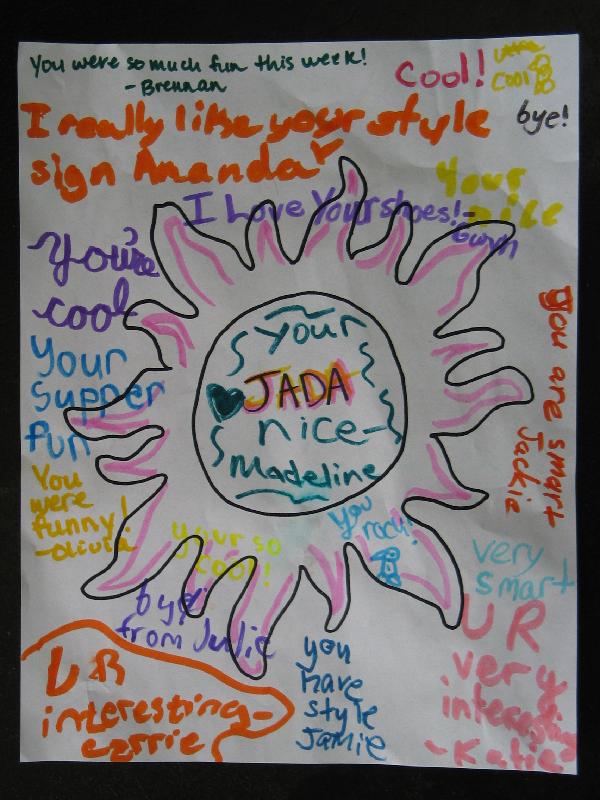 You were so much fun this week!
- Brennan
Cool!
Ultra
Cool
bye!
I really like your style
sign Ananda
Your
nice
I Love Your shoes! -
Gwyn
You're
cool
Your
Supper
fun
You
were
funny!
-Olivia
Your
JADA
nice-
Madeline
You are smart
Jackie
You
rock!
Your so
cool!
very
smart
bye!
from Julie
UR
interesting-
carrie
you
have
style
Jamie
UR
very
interesting
- Katie